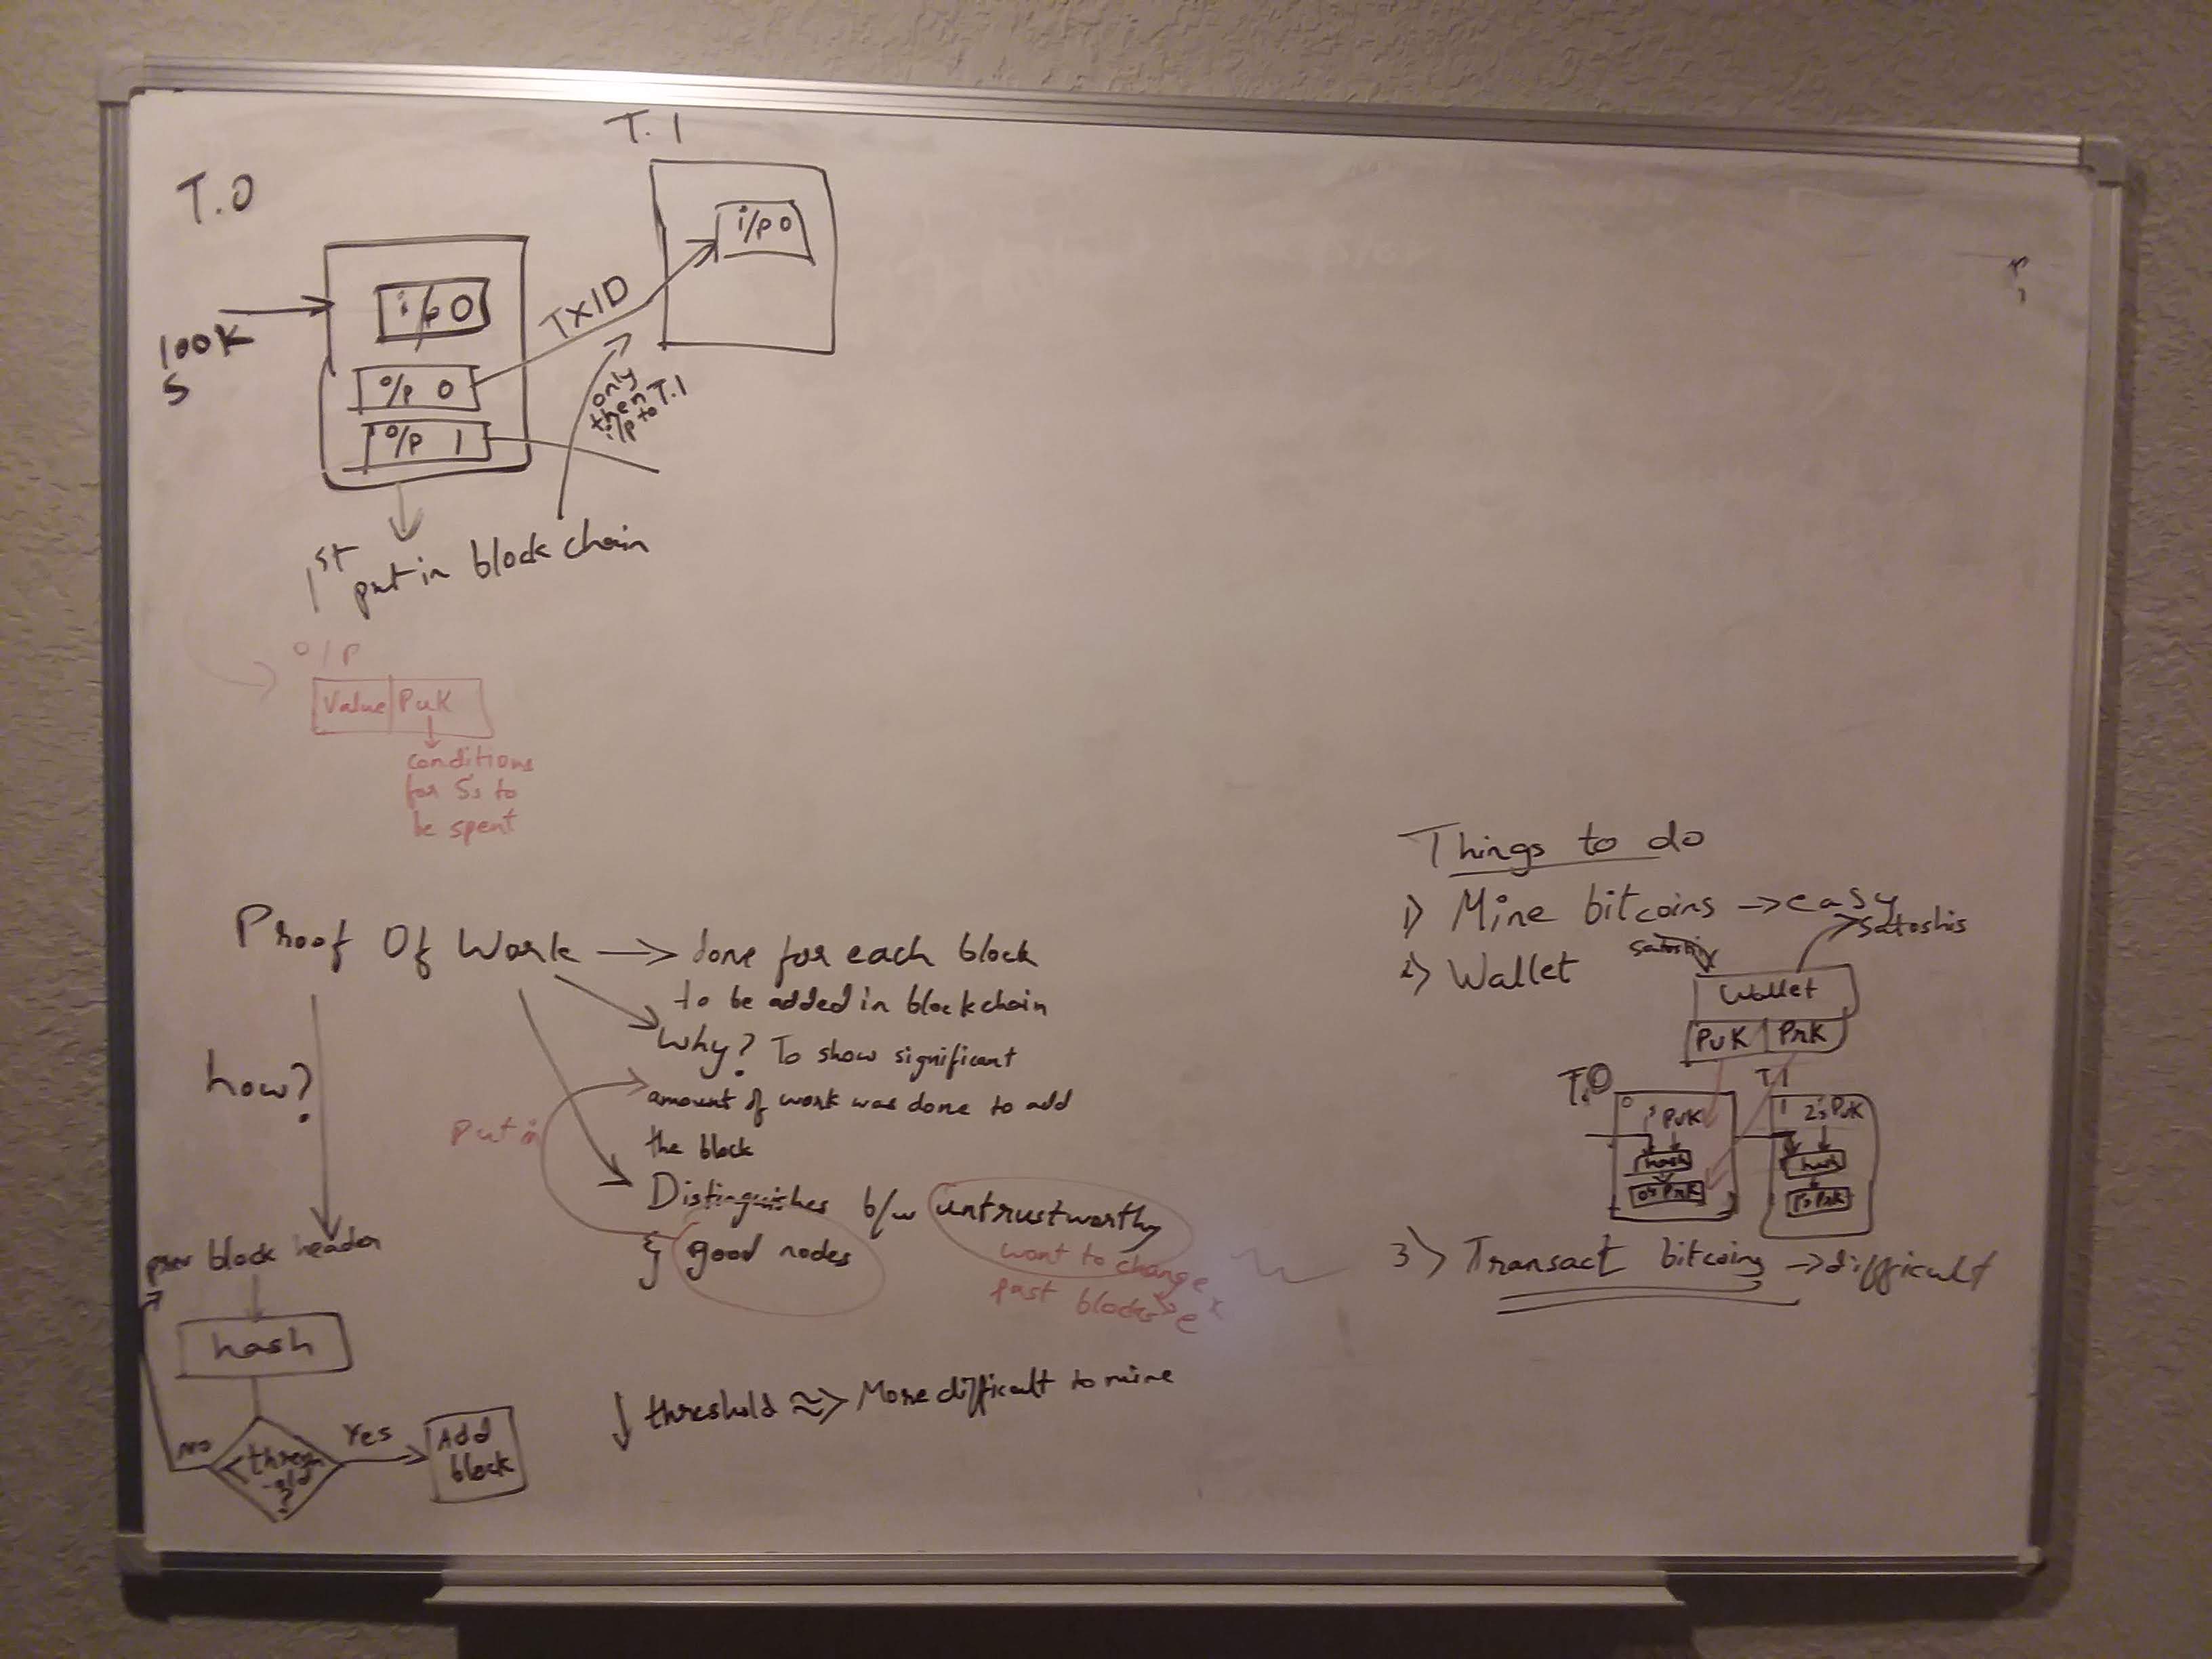 T.0
T.1
100K
S
i/p 0
o/p 0
o/p 1
TxID
i/p 0
only
then
i/p to T.1
1st put in block chain
o/p
Value PuK
conditions
for S's to
be spent
Proof Of Work → done for each block
to be added in blockchain
Why? To show significant
amount of work was done to add
the block
put in
Distinguishes b/w untrustworthy
& good nodes
want to change
past blocks
how?
prev block header
hash
< thresh
-old
?
No
Yes
Add
block
↓ threshold ≈> More difficult to mine
Things to do
1) Mine bitcoins → easy
2) Wallet
satoshis
Wallet
PuK PrK
T.0
T.1
0
1's PuK
hash
0's PrK
1
2's PuK
hash
1's PrK
3) Transact bitcoins → difficult